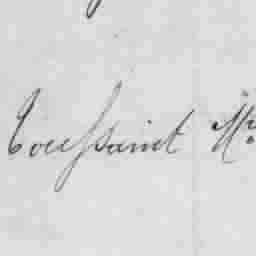 Toussaint Mr